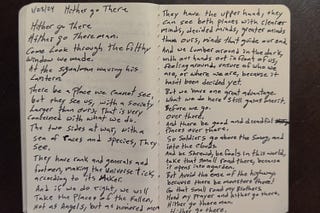 Hither go There
Hither go There
Hither go There man.
Come Look through the filthy
window we made.
Of the signalman waving his
Lantern.
There be a Place we cannot see,
but they see us, with a society
larger than ours, that is very
concerned with what we do.
The two sides at war, with a
of races and species, They
see.
They have rank and generals and
footmen, making the devices tick,
according to its Maker.
And if we do right, we will
Take the Places of the Fallen,
Not as Angels, but as honored men
They have the upper hand, they
can see both places with clearer
minds, decided minds, greater minds
than ours, minds that guide our end.
And we Lumber around in the dark,
with our hands out in front of us,
feeling around, unsure of who we
are, or where we are, because it
hasnt been decided yet.
But we have one great advantage.
What we do here still gains merit.
Before we go
over there,
And there be good and dreadful
Places over there.
So Soldiers go where the Song, and
into the Clouds.
And be shrewd, be fools in this world,
take that small road there, because
it opens into again.
But Avoid the Ease of the highway
because there be monsters there!
Go that small road my Brothers.
Hold my Prayer and Hither go there,
Hither go there man.
Hither go there.